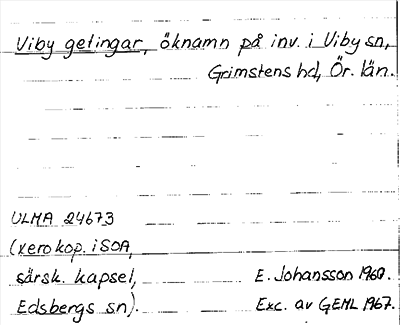 Viby getingar, öknamn på inv. i Viby sn,
Grimstens hd, Ör. län.
ULMA 24673
(xerokop. i SOA,
särsk. kapsel, E. Johansson 1960.
Edsbergs sn). Exc. av GEML 1967.